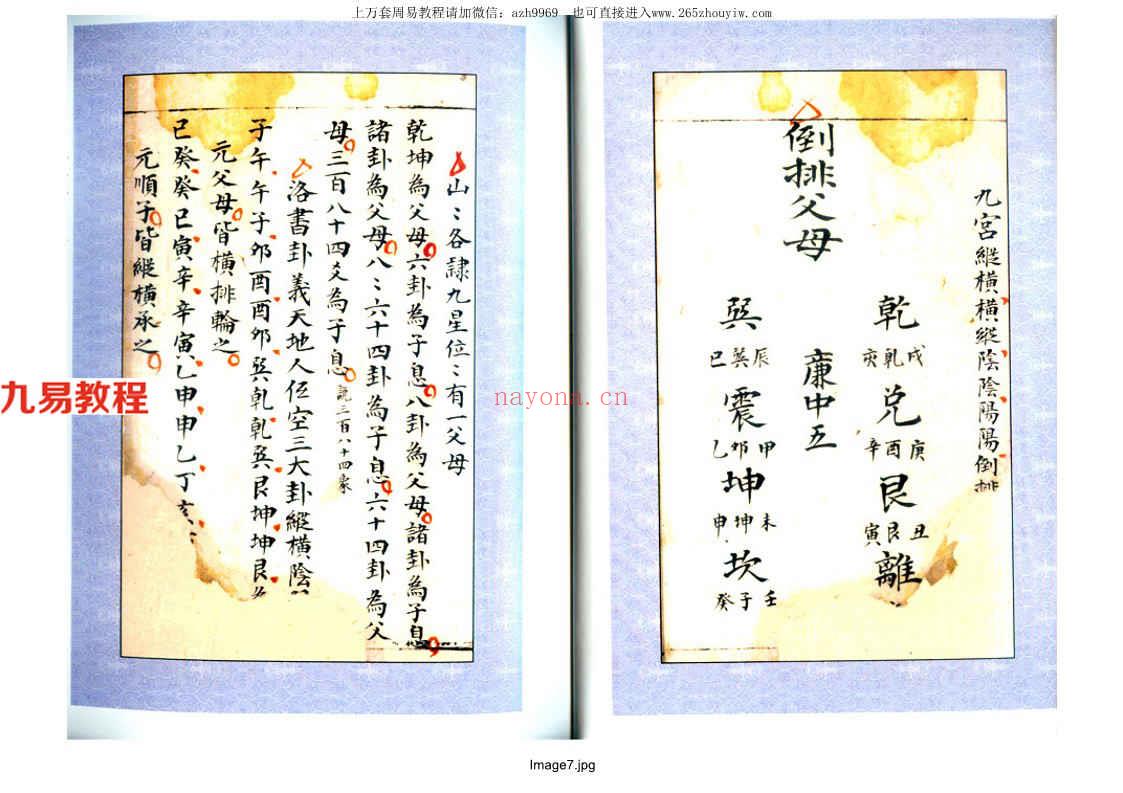 上万套周易教程请加微信：azh9969 也可直接进入www.265zhouyiw.com
九宮縱橫橫縱陰陰陽陽倒排
倒排父母
乾
戌乾亥
兌
庚酉辛
艮
丑艮寅
離
廉中五
巽
辰巽巳
震
甲卯乙
坤
未坤申
坎
壬子癸
山〻各隷九星位〻有一父母
乾坤為父母六卦為子息八卦為父母諸卦為子息
諸卦為父母八〻六十四卦為子息六十四卦為父
母三百八十四爻為子息
洛書卦義天地人位空三大卦縱橫陰
子午午子卯酉酉卯巽乾乾巽艮坤坤艮為
元父母皆橫排輪之
巳癸癸巳寅辛辛寅乙申申乙丁亥
元順子皆縱橫承之
九易教程
nayona.cn
Image7.jpg